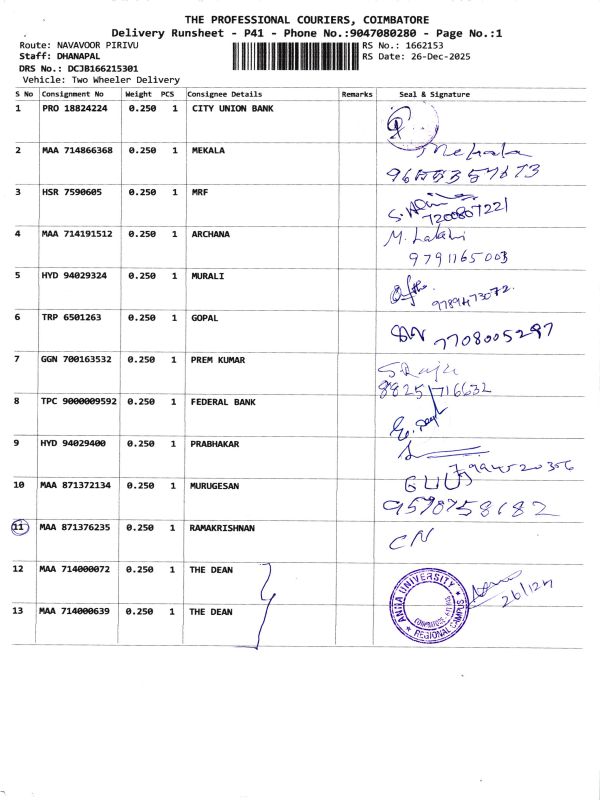 THE PROFESSIONAL COURIERS, COIMBATORE
Delivery Runsheet - P41 - Phone No.:9047080280 - Page No.:1
Route: NAVAVOOR PIRIVU RS No.: 1662153
Staff: DHANAPAL RS Date: 26-Dec-2025
DRS No.: DCJB166215301
Vehicle: Two Wheeler Delivery
S No Consignment No Weight PCS Consignee Details Remarks Seal & Signature
1 PRO 18824224 0.250 1 CITY UNION BANK
2 MAA 714866368 0.250 1 MEKALA Mekala
3 HSR 7590605 0.250 1 MRF
7200807221
4 MAA 714191512 0.250 1 ARCHANA M. Lakshmi
9791165003
5 HYD 94029324 0.250 1 MURALI
9789473072.
6 TRP 6501263 0.250 1 GOPAL 7708005297
7 GGN 700163532 0.250 1 PREM KUMAR S Raju
8825716632
8 TPC 9000009592 0.250 1 FEDERAL BANK
9 HYD 94029400 0.250 1 PRABHAKAR
7994520356
10 MAA 871372134 0.250 1 MURUGESAN GUU
9578758682
11 MAA 871376235 0.250 1 RAMAKRISHNAN CN
12 MAA 714000072 0.250 1 THE DEAN
13 MAA 714000639 0.250 1 THE DEAN
ANNA UNIVERSITY
REGIONAL CAMPUS
26/12/